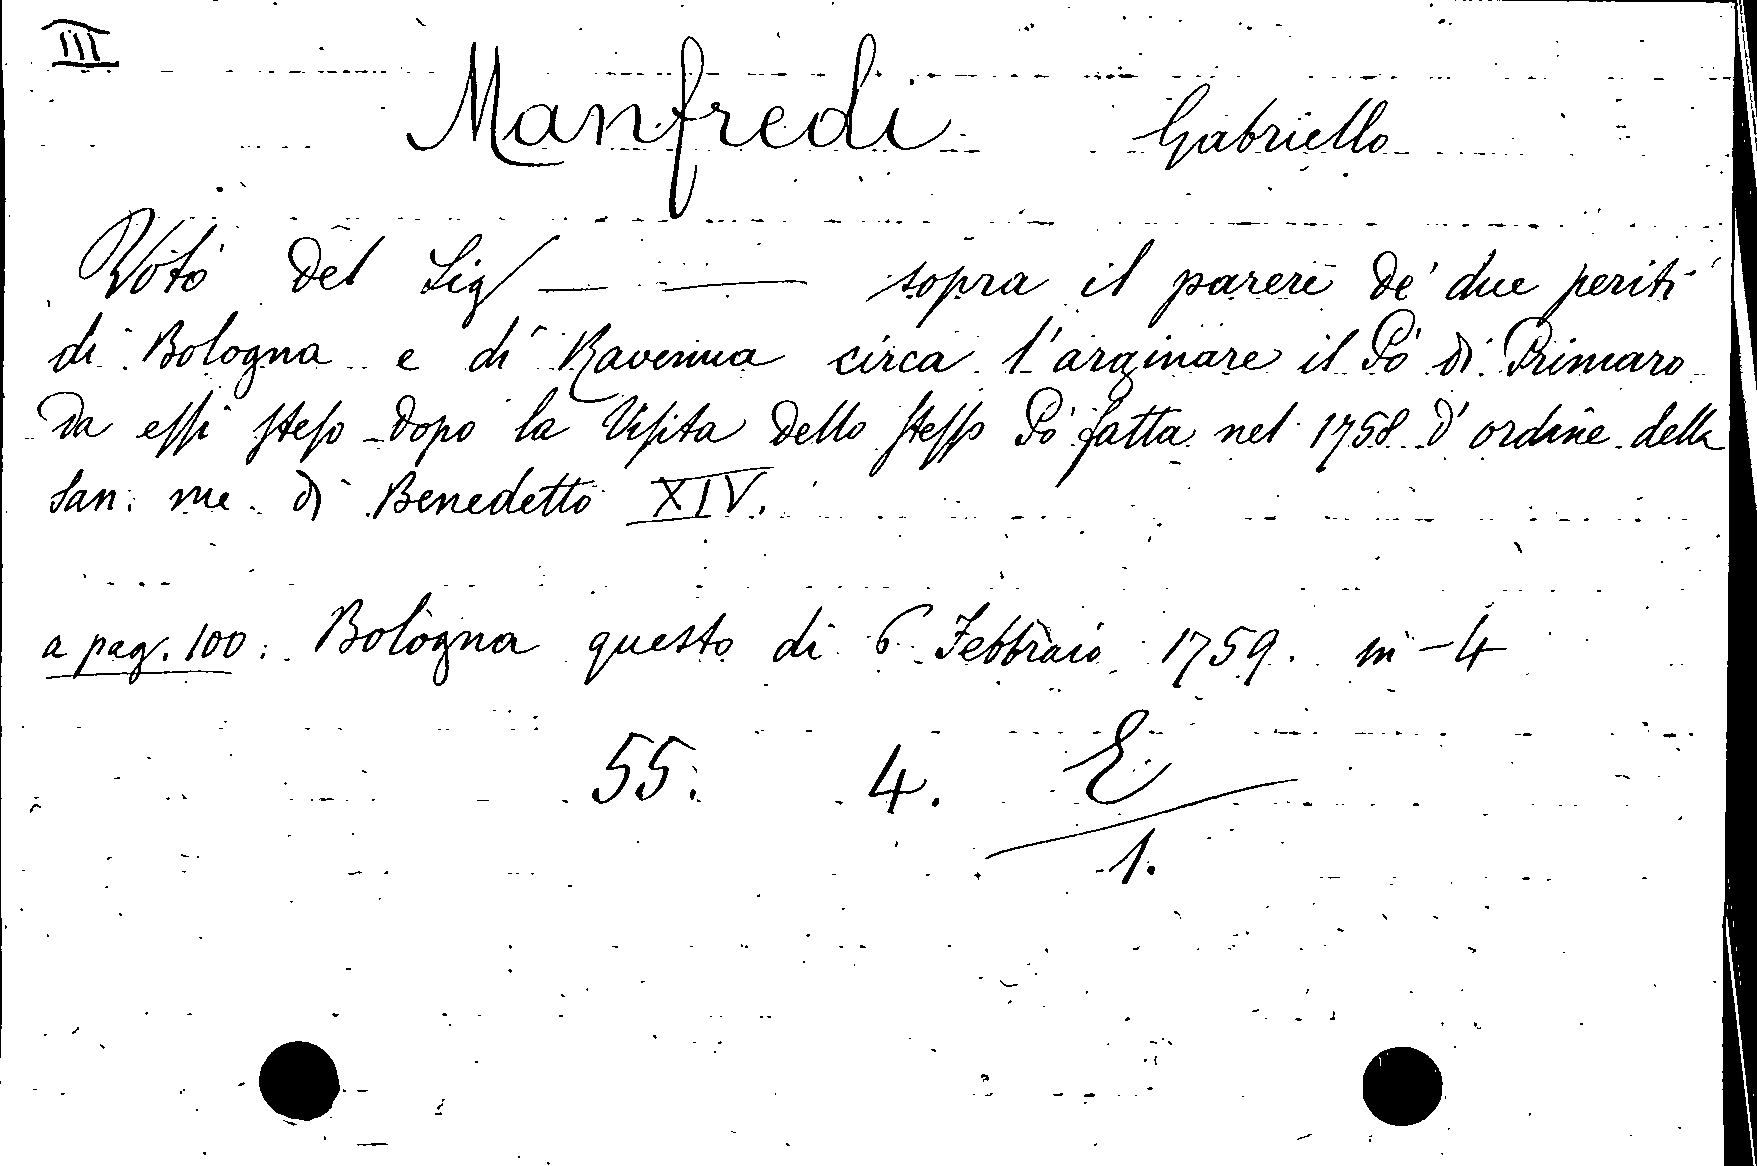 III
Manfredi Gabriello
Voto del Sig — — sopra il parere de' due periti
di Bologna e di Ravenna circa l'arginare il Pò di Primaro
da essi steso dopo la Visita dello stesso Pò fatta nel 1758 d'ordine della
San. me. di Benedetto XIV.
a pag. 100: Bologna questo di 6 Febbraio 1759. in-4
55. 4. E
1.